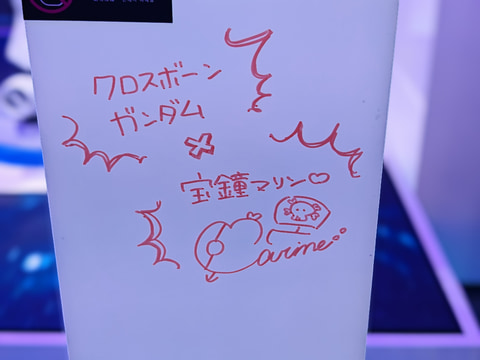 クロスボーン
ガンダム
×
宝鐘マリン♡
Marine